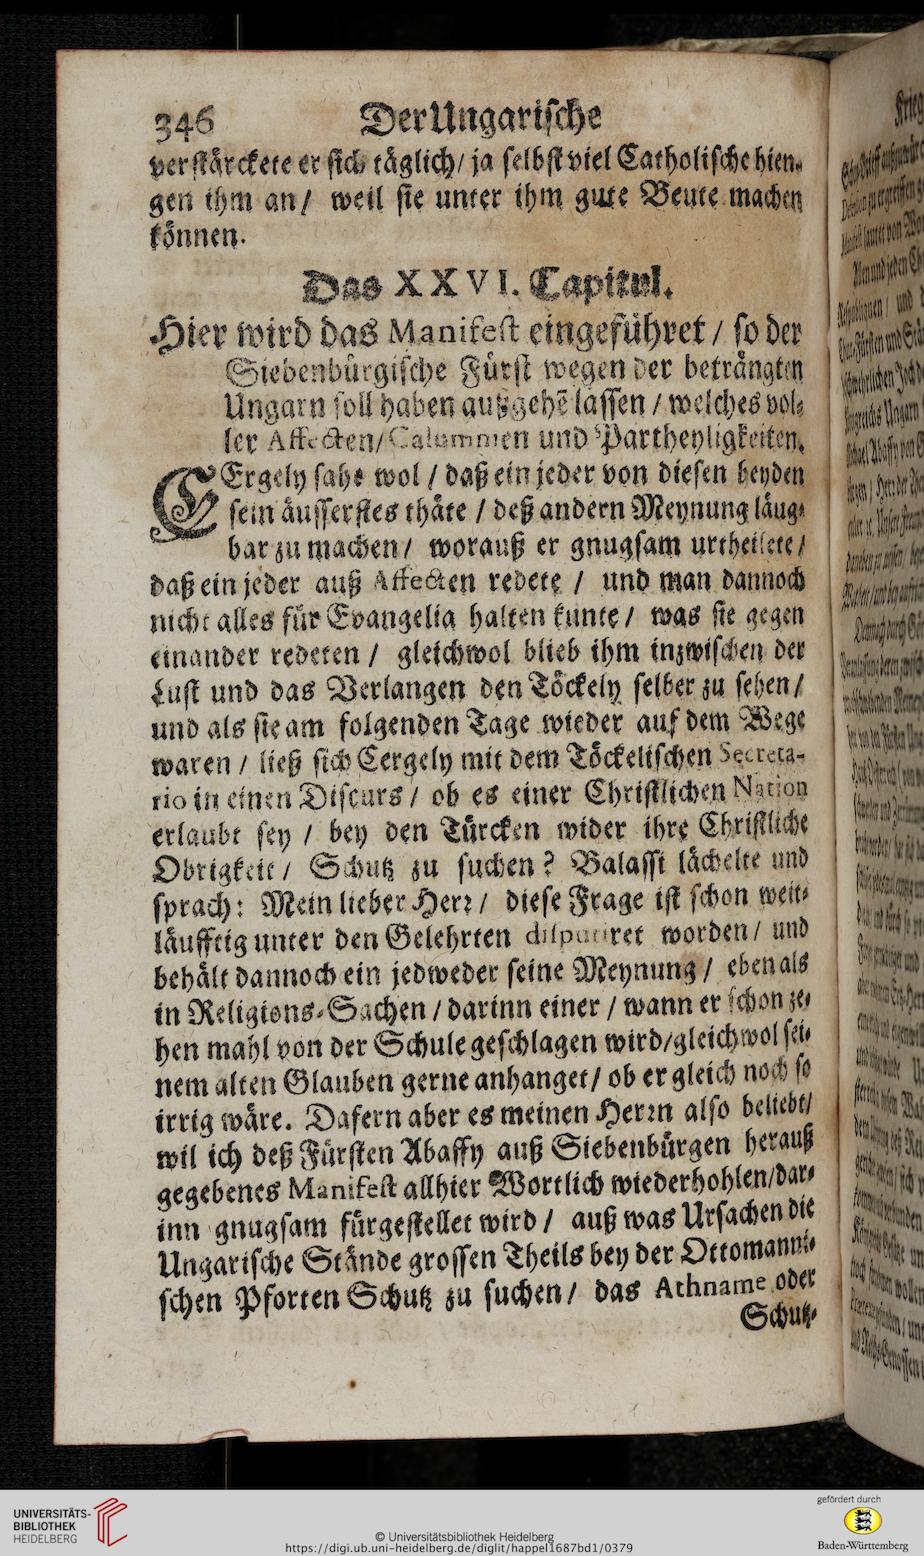 346 Der Ungarische
verstärckete er sich täglich/ ja selbst viel Catholische hien-
gen ihm an/ weil sie unter ihm gute Beute machen
können.
Das XXVI. Capitul.
Hier wird das Manifest eingeführet / so der
Siebenbürgische Fürst wegen der beträngten
Ungarn soll haben außgehē lassen / welches vol-
ler Affecten/ Calumnien und Partheyligkeiten.
CErgely sahe wol / daß ein jeder von diesen beyden
sein äusserstes thäte / deß andern Meynung läug-
bar zu machen/ worauß er gnugsam urtheilete/
daß ein jeder auß Affecten redete / und man dannoch
nicht alles für Evangelia halten kunte/ was sie gegen
einander redeten / gleichwol blieb ihm inzwischen der
Lust und das Verlangen den Töckely selber zu sehen/
und als sie am folgenden Tage wieder auf dem Wege
waren / ließ sich Cergely mit dem Töckelischen Secreta-
rio in einen Discurs / ob es einer Christlichen Nation
erlaubt sey / bey den Türcken wider ihre Christliche
Obrigkeit/ Schutz zu suchen? Balassi lächelte und
sprach: Mein lieber Herr/ diese Frage ist schon weit-
läufftig unter den Gelehrten disputiret worden/ und
behält dannoch ein jedweder seine Meynung/ eben als
in Religions-Sachen / darinn einer / wann er schon ze-
hen mahl von der Schule geschlagen wird/gleichwol sei-
nem alten Glauben gerne anhanget/ ob er gleich noch so
irrig wäre. Dafern aber es meinen Herrn also beliebt/
wil ich deß Fürsten Abaffy auß Siebenbürgen herauß
gegebenes Manifest allhier Wortlich wiederhohlen/dar-
inn gnugsam fürgestellet wird / auß was Ursachen die
Ungarische Stände grossen Theils bey der Ottomanni-
schen Pforten Schutz zu suchen/ das Athname oder
Schutz-
UNIVERSITÄTS-
BIBLIOTHEK
HEIDELBERG
© Universitätsbibliothek Heidelberg
https://digi.ub.uni-heidelberg.de/diglit/happel1687bd1/0379
gefördert durch
Baden-Württemberg